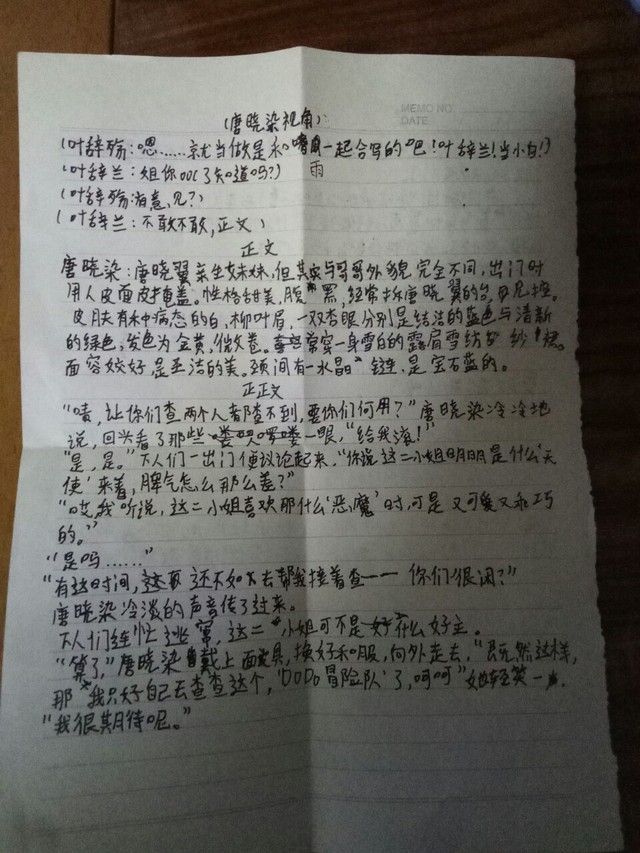 MEMO NO.
DATE
(唐晓染视角)
(叶辞殇:嗯……就当做是和 雨一起合写的吧!叶辞兰!当小白!)
(叶辞兰:姐你OOC了知道吗?)
(叶辞殇:有意见?)
(叶辞兰:不敢不敢,正文)
正文
唐晓染:唐晓翼亲生妹妹,但其实与哥哥外貌完全不同,出门时
用人皮面皮掩盖。性格甜美,腹黑,经常拆唐晓翼的台,毋尼控。
皮肤有种病态的白,柳叶眉,一双杏眼分别是结洁的蓝色与清新
的绿色,发色为金黄,微卷。常穿一身雪白的露肩雪纺纱裙。
面容姣好是圣洁的美。颈间有一水晶链,是宝石蓝的。
正正文
“啧,让你们查两个人都查不到,要你们何用?”唐晓染冷冷地
说,回头看了那些喽啰一眼,“给我滚!”
“是,是。”下人们一出门便议论起来,“你说这二小姐明明是什么‘天
使’来着,脾气怎么那么差?”
“哎,我听说,这二小姐喜欢那什么‘恶魔’时,可是又可爱又乖巧
的。”
“是吗……”
“有这时间,还不如下去帮我接着查——你们很闲?”
唐晓染冷淡的声音传了过来。
下人们连忙逃窜,这二小姐可不是什么好主。
“算了,”唐晓染戴上面具,换好和服,向外走去,“既然这样,
那我只好自己去查查这个,‘DODO冒险队’了,呵呵”她轻笑一声.
“我很期待呢。”